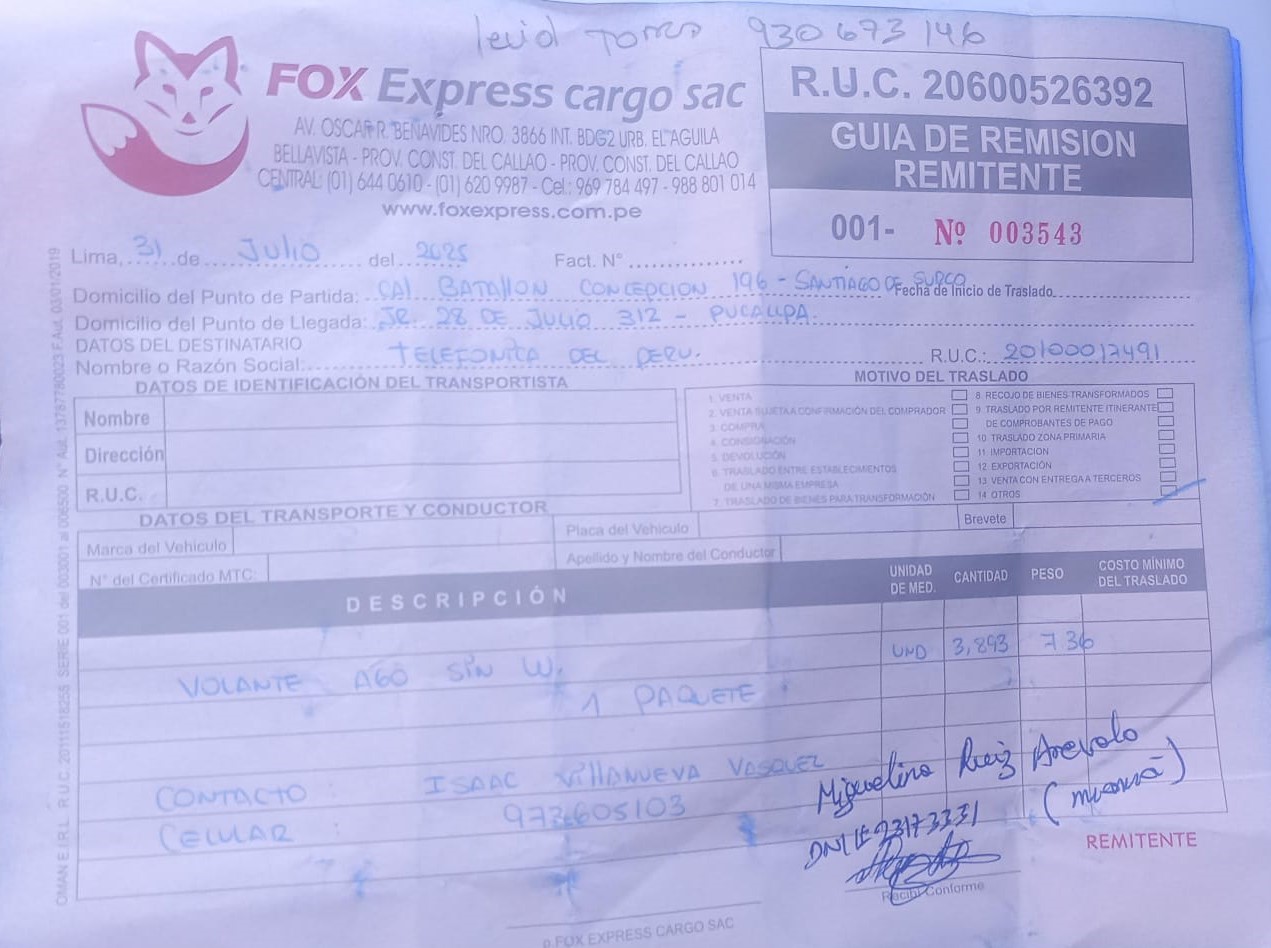 Torres 930 673 146
FOX Express cargo sac
AV. OSCAR R. BENAVIDES NRO. 3866 INT. BDG2 URB. EL AGUILA
BELLAVISTA - PROV. CONST. DEL CALLAO - PROV. CONST. DEL CALLAO
CENTRAL: (01) 644 0610 - (01) 620 9987 - Cel.: 969 784 497 - 988 801 014
www.foxexpress.com.pe
R.U.C. 20600526392
GUIA DE REMISION
REMITENTE
001- Nº 003543
Lima, 31 de JULIO del 2025 Fact. N°
Domicilio del Punto de Partida: CAL BATALLON CONCEPCION 196 - SANTIAGO DE SURCO Fecha de Inicio de Traslado
Domicilio del Punto de Llegada: JR. 28 DE JULIO 312 - PUCALLPA.
DATOS DEL DESTINATARIO
Nombre o Razón Social: TELEFONICA DEL PERU. R.U.C.: 20100017491
DATOS DE IDENTIFICACIÓN DEL TRANSPORTISTA
Nombre
Dirección
R.U.C.
MOTIVO DEL TRASLADO
1. VENTA
2. VENTA SUJETA A CONFIRMACIÓN DEL COMPRADOR
3. COMPRA
4. CONSIGNACIÓN
5. DEVOLUCIÓN
6. TRASLADO ENTRE ESTABLECIMIENTOS
DE UNA MISMA EMPRESA
7. TRASLADO DE BIENES PARA TRANSFORMACIÓN
8. RECOJO DE BIENES TRANSFORMADOS
9 TRASLADO POR REMITENTE ITINERANTE
DE COMPROBANTES DE PAGO
10 TRASLADO ZONA PRIMARIA
11 IMPORTACION
12. EXPORTACIÓN
13 VENTA CON ENTREGA A TERCEROS
14 OTROS
DATOS DEL TRANSPORTE Y CONDUCTOR
Marca del Vehículo
Placa del Vehículo
Brevete
N° del Certificado MTC:
Apellido y Nombre del Conductor
DESCRIPCIÓN
UNIDAD
DE MED.
CANTIDAD
PESO
COSTO MÍNIMO
DEL TRASLADO
VOLANTE AGO SIN W. UND 3,893 7.36
1 PAQUETE
CONTACTO : ISAAC VILLANUEVA VASQUEZ
CELULAR : 973605103
Miguelina Ruiz Arevalo
REMITENTE
Recibí Conforme
p.FOX EXPRESS CARGO SAC